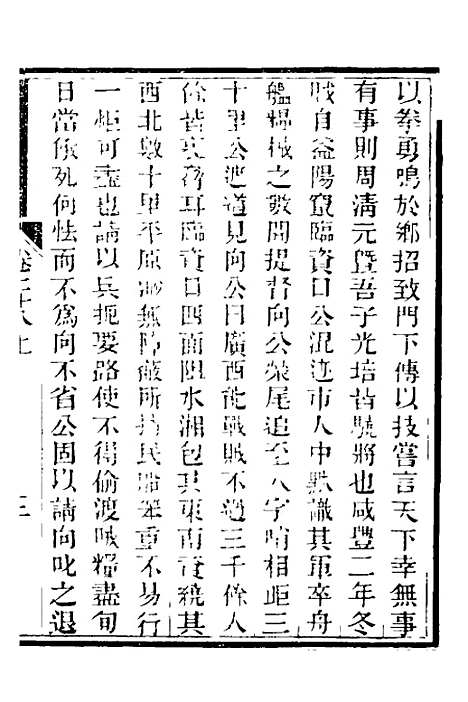 以拳勇鳴於鄉招致門下傳以技嘗言天下幸無事
有事則周清元暨吾子光培皆驍將也咸豐二年冬
賊自益陽竄臨資口公混迹市人中默識其軍卒舟
艦器械之數聞提督向公榮尾追至八字哨相距三
十里公迎道見向公曰廣西能戰賊不過三千餘人
餘皆裹脅耳臨資口四面阻水湘包其東南資繞其
西北數十里平原無障蔽所擄民船笨重不易行
一炬可盡也請以兵扼要路使不得偷渡賊糧盡旬
日當餓死何怯而不為向不省公固以請向叱之退
卷二十八上
三